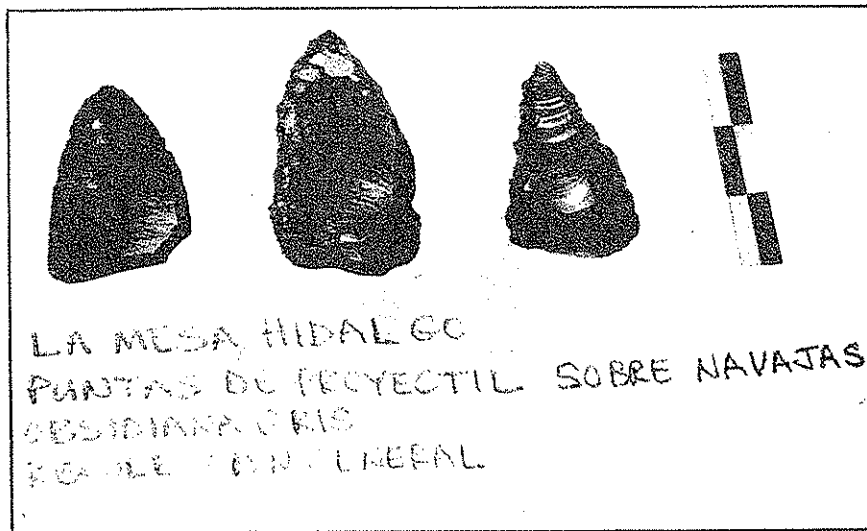 LA MESA, HIDALGO
PUNTAS DE PROYECTIL SOBRE NAVAJAS
OBSIDIANA GRIS